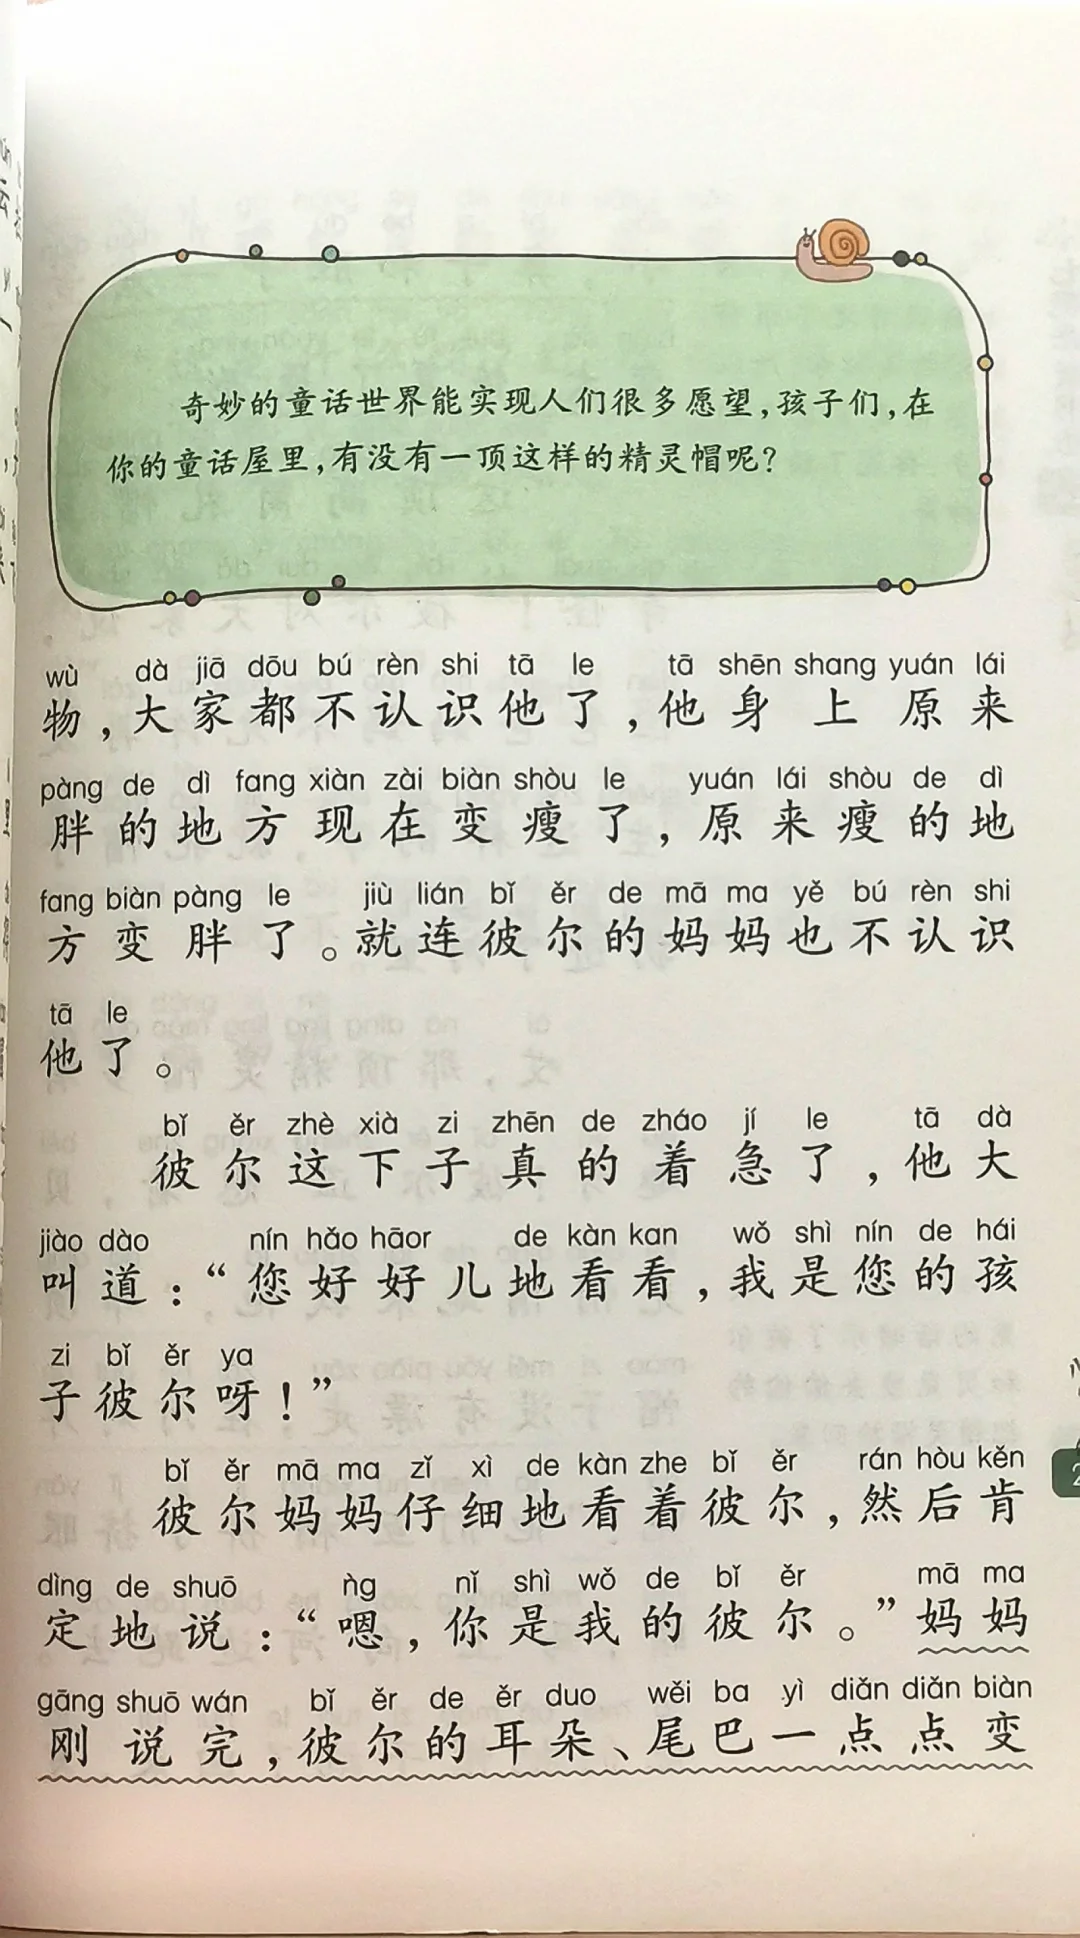 奇妙的童话世界能实现人们很多愿望,孩子们,在
你的童话屋里,有没有一顶这样的精灵帽呢?
wù dà jiā dōu bú rèn shi tā le tā shēn shang yuán lái
物,大家都不认识他了,他身上原来
pàng de dì fang xiàn zài biàn shòu le yuán lái shòu de dì
胖的地方现在变瘦了,原来瘦的地
fang biàn pàng le jiù lián bǐ ěr de mā ma yě bú rèn shi
方变胖了。就连彼尔的妈妈也不认识
tā le
他了。
bǐ ěr zhè xià zi zhēn de zháo jí le tā dà
彼尔这下子真的着急了,他大
jiào dào nín hǎo hāor de kàn kan wǒ shì nín de hái
叫道:“您好好儿地看看,我是您的孩
zi bǐ ěr ya
子彼尔呀!”
bǐ ěr mā ma zǐ xì de kàn zhe bǐ ěr rán hòu kěn
彼尔妈妈仔细地看着彼尔,然后肯
dìng de shuō ǹg nǐ shì wǒ de bǐ ěr mā ma
定地说:“嗯,你是我的彼尔。”妈妈
gāng shuō wán bǐ ěr de ěr duo wěi ba yì diǎn diǎn biàn
刚说完,彼尔的耳朵、尾巴一点点变